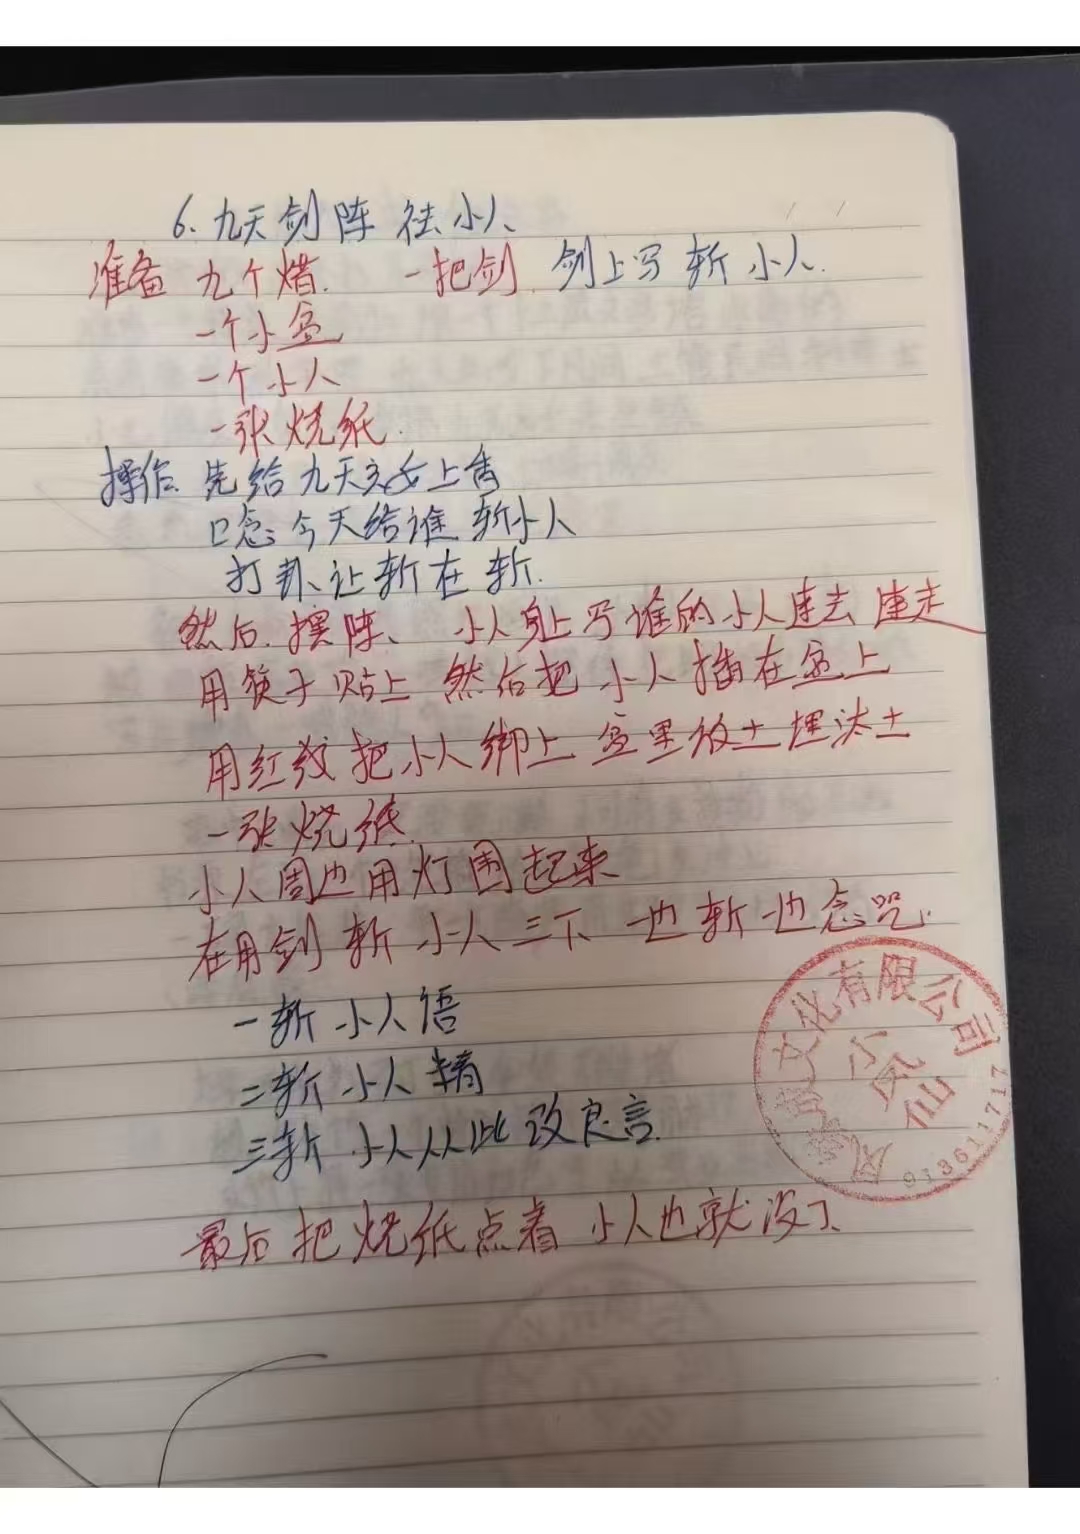 6. 九天剑阵 祛小人
准备 九个烛. 一把剑. 剑上写 斩 小人.
一个小盆
一个小人
一张烧纸.
操作. 先给九天玄女上香
口念: 今天给谁 斩小人
打卦、让斩在斩.
然后. 摆阵、 小人身上写谁的小人速去 速走
用筷子贴上 然后把小人插在盆上
用红纹把小人绑上 盆里放土埋汰土
一张烧纸.
小人周边用灯围起来
在用剑斩小人三下 边斩边念咒.
一斩小人语
二斩小人精
三斩小人从此改良言.
最后把烧纸点着 小人也就没了.
文化有限公司
小凤仙
913611717